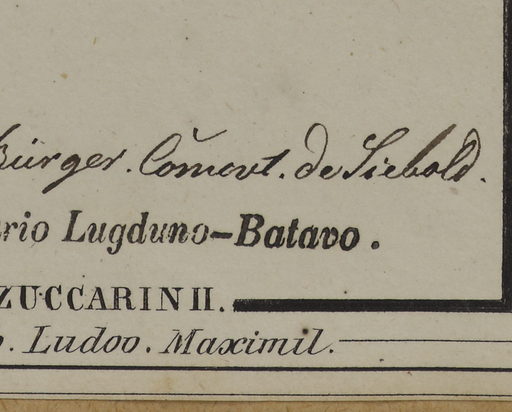 Bürger. Com̆ovt. de Siebold.
rio Lugduno-Batavo.
ZUCCARINII.
. Ludov. Maximil.